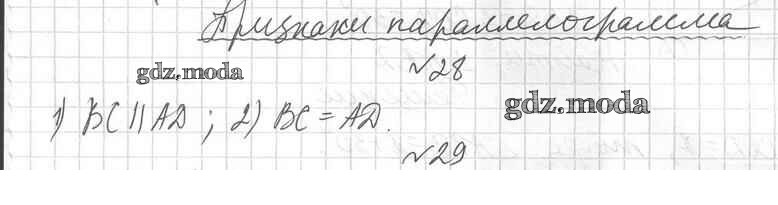 Признаки параллелограмма
№28
gdz.moda
gdz.moda
1) BC || AD ; 2) BC = AD.
№29